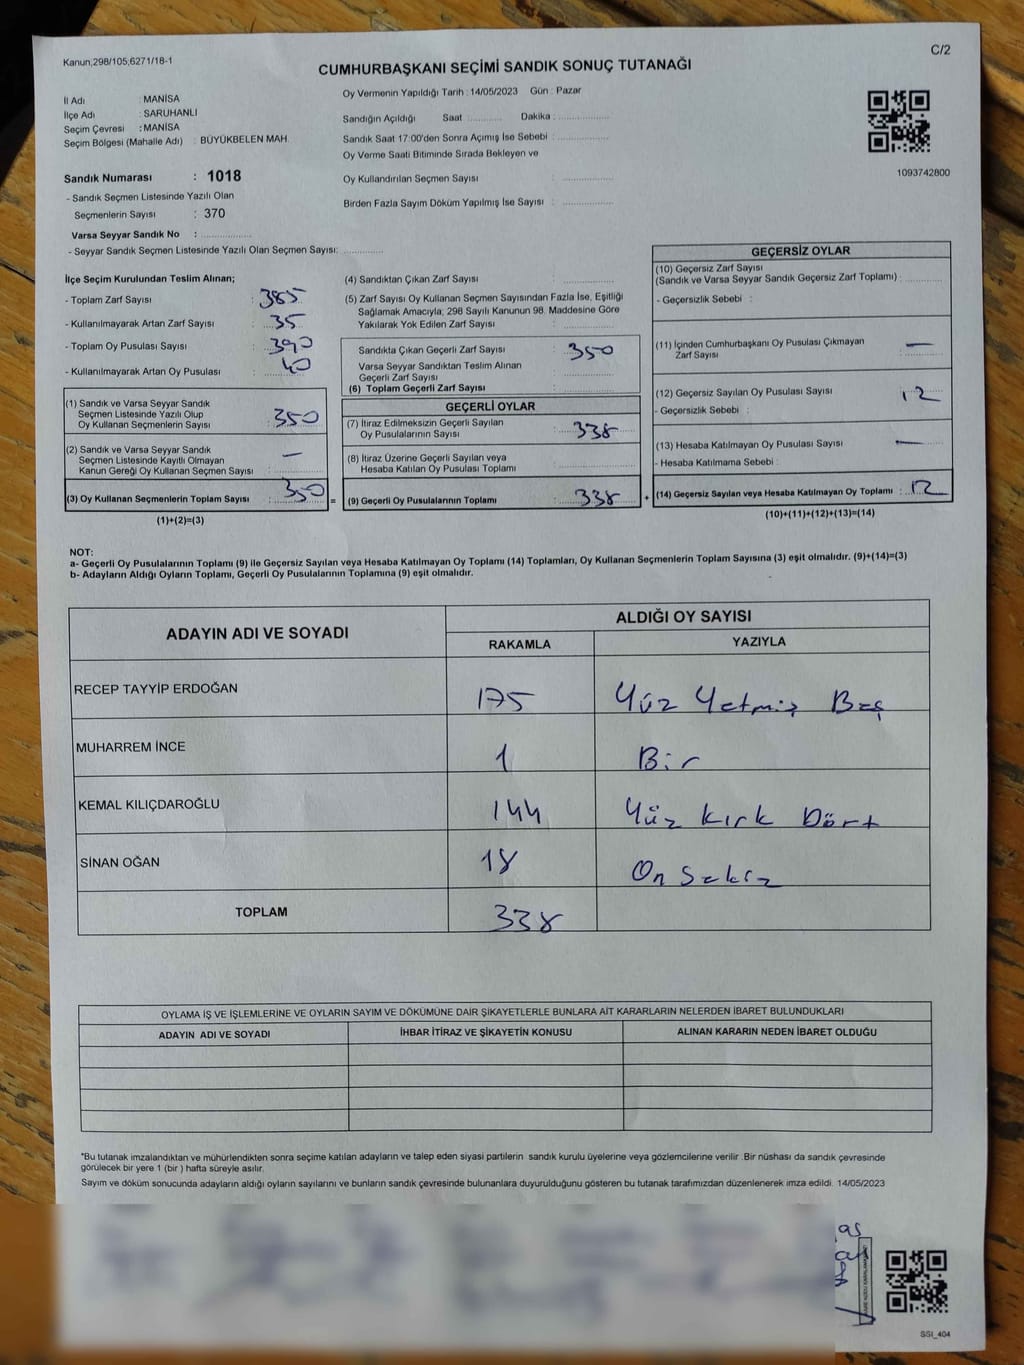 Kanun,298/105,6271/18-1
C/2
CUMHURBAŞKANI SEÇİMİ SANDIK SONUÇ TUTANAĞI
İl Adı : MANİSA
İlçe Adı : SARUHANLI
Seçim Çevresi : MANİSA
Seçim Bölgesi (Mahalle Adı) : BÜYÜKBELEN MAH.
Sandık Numarası : 1018
- Sandık Seçmen Listesinde Yazılı Olan
Seçmenlerin Sayısı : 370
Varsa Seyyar Sandık No : ..................
- Seyyar Sandık Seçmen Listesinde Yazılı Olan Seçmen Sayısı: ..............
Oy Vermenin Yapıldığı Tarih : 14/05/2023 Gün : Pazar
Sandığın Açıldığı Saat ............. Dakika : ..................
Sandık Saat 17:00'den Sonra Açımış İse Sebebi : ..................
Oy Verme Saati Bitiminde Sırada Bekleyen ve
Oy Kullandırılan Seçmen Sayısı : ..................
Birden Fazla Sayım Döküm Yapılmış İse Sayısı : ..................
1093742800
İlçe Seçim Kurulundan Teslim Alınan;
- Toplam Zarf Sayısı : 385
- Kullanılmayarak Artan Zarf Sayısı : 35
- Toplam Oy Pusulası Sayısı : 390
- Kullanılmayarak Artan Oy Pusulası : 40
(1) Sandık ve Varsa Seyyar Sandık
Seçmen Listesinde Yazılı Olup
Oy Kullanan Seçmenlerin Sayısı : 350
(2) Sandık ve Varsa Seyyar Sandık
Seçmen Listesinde Kayıtlı Olmayan
Kanun Gereği Oy Kullanan Seçmen Sayısı : —
(3) Oy Kullanan Seçmenlerin Toplam Sayısı : 350 =
(1)+(2)=(3)
(4) Sandıktan Çıkan Zarf Sayısı : ..................
(5) Zarf Sayısı Oy Kullanan Seçmen Sayısından Fazla İse, Eşitliği
Sağlamak Amacıyla; 298 Sayılı Kanunun 98. Maddesine Göre
Yakılarak Yok Edilen Zarf Sayısı : ..................
Sandıkta Çıkan Geçerli Zarf Sayısı : 350
Varsa Seyyar Sandıktan Teslim Alınan
Geçerli Zarf Sayısı : ..................
(6) Toplam Geçerli Zarf Sayısı : ..................
GEÇERLİ OYLAR
(7) İtiraz Edilmeksizin Geçerli Sayılan
Oy Pusulalarının Sayısı : 338
(8) İtiraz Üzerine Geçerli Sayılan veya
Hesaba Katılan Oy Pusulası Toplamı : ..................
(9) Geçerli Oy Pusulalarının Toplamı : 338 +
GEÇERSİZ OYLAR
(10) Geçersiz Zarf Sayısı
(Sandık ve Varsa Seyyar Sandık Geçersiz Zarf Toplamı) : ..................
- Geçersizlik Sebebi :
(11) İçinden Cumhurbaşkanı Oy Pusulası Çıkmayan
Zarf Sayısı : —
(12) Geçersiz Sayılan Oy Pusulası Sayısı : 12
- Geçersizlik Sebebi :
(13) Hesaba Katılmayan Oy Pusulası Sayısı : —
- Hesaba Katılmama Sebebi :
(14) Geçersiz Sayılan veya Hesaba Katılmayan Oy Toplamı : 12
(10)+(11)+(12)+(13)=(14)
NOT:
a- Geçerli Oy Pusulalarının Toplamı (9) ile Geçersiz Sayılan veya Hesaba Katılmayan Oy Toplamı (14) Toplamları, Oy Kullanan Seçmenlerin Toplam Sayısına (3) eşit olmalıdır. (9)+(14)=(3)
b- Adayların Aldığı Oyların Toplamı, Geçerli Oy Pusulalarının Toplamına (9) eşit olmalıdır.
ADAYIN ADI VE SOYADI
ALDIĞI OY SAYISI
RAKAMLA YAZIYLA
RECEP TAYYİP ERDOĞAN 175 Yüz Yetmiş Beş
MUHARREM İNCE 1 Bir
KEMAL KILIÇDAROĞLU 144 Yüz Kırk Dört
SİNAN OĞAN 18 On Sekiz
TOPLAM 338
OYLAMA İŞ VE İŞLEMLERİNE VE OYLARIN SAYIM VE DÖKÜMÜNE DAİR ŞİKAYETLERLE BUNLARA AİT KARARLARIN NELERDEN İBARET BULUNDUKLARI
ADAYIN ADI VE SOYADI İHBAR İTİRAZ VE ŞİKAYETİN KONUSU ALINAN KARARIN NEDEN İBARET OLDUĞU
*Bu tutanak imzalandıktan ve mühürlendikten sonra seçime katılan adayların ve talep eden siyasi partilerin sandık kurulu üyelerine veya gözlemcilerine verilir .Bir nüshası da sandık çevresinde
görülecek bir yere 1 (bir ) hafta süreyle asılır.
Sayım ve döküm sonucunda adayların aldığı oyların sayılarını ve bunların sandık çevresinde bulunanlara duyurulduğunu gösteren bu tutanak tarafımızdan düzenlenerek imza edildi. 14/05/2023
SSI_404